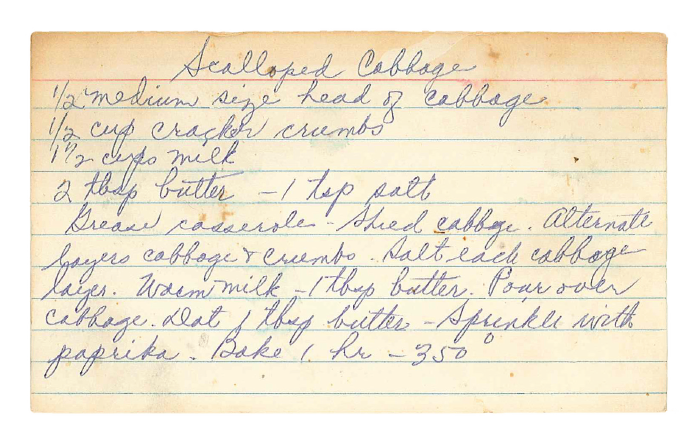 Scalloped Cabbage
1/2 medium size head of cabbage
1/2 cup cracker crumbs
1 1/2 cups milk
2 tbsp butter - 1 tsp salt
Grease casserole - Shred cabbage. Alternate
layers cabbage & crumbs. Salt each cabbage
layer. Warm milk - 1 tbsp butter. Pour over
cabbage. Dot 1 tbsp butter - Sprinkle with
paprika. Bake 1 hr - 350°